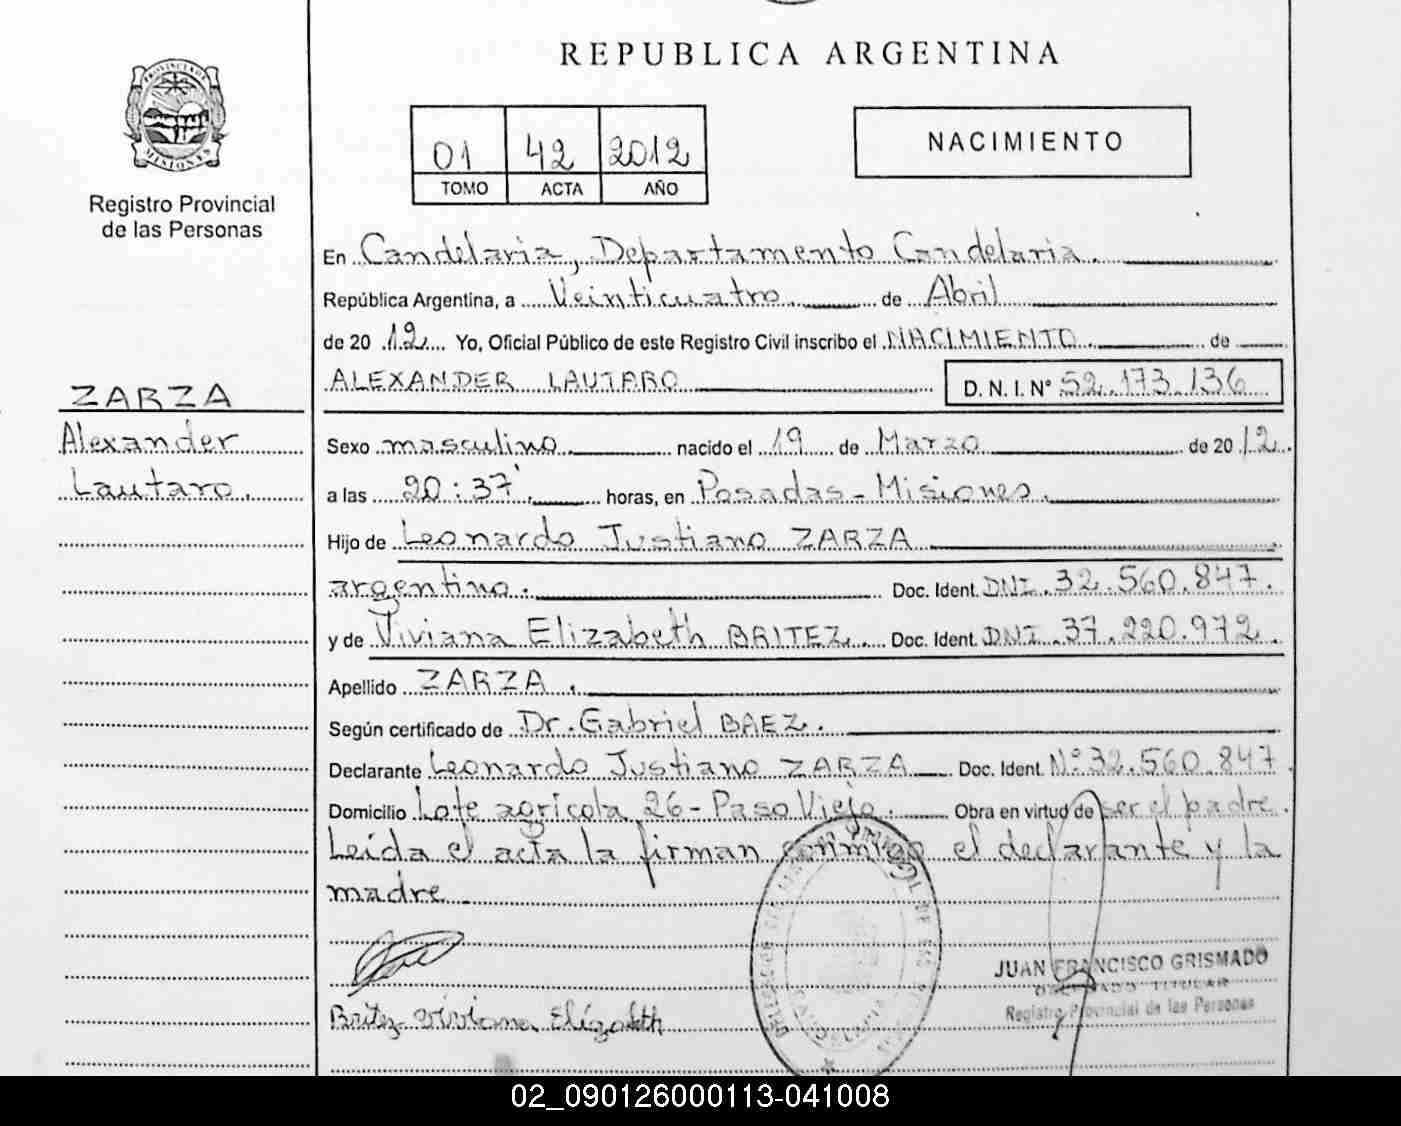 REPUBLICA ARGENTINA
PROVINCIA DE
MISIONES
Registro Provincial
de las Personas
01 42 2012
TOMO ACTA AÑO
NACIMIENTO
En Candelaria, Departamento Candelaria.
República Argentina, a Veinticuatro de Abril
de 2012 Yo, Oficial Público de este Registro Civil inscribo el NACIMIENTO. de
ALEXANDER LAUTARO D. N. I. Nº 52.173.136
ZARZA
Alexander
Lautaro.
Sexo masculino nacido el 19 de Marzo de 2012.
a las 20:37'. horas, en Posadas - Misiones.
Hijo de Leonardo Justiano ZARZA
argentino. Doc. Ident. DNI. 32.560.847.
y de Viviana Elizabeth BRITEZ. Doc. Ident. DNI. 37.220.972.
Apellido ZARZA.
Según certificado de Dr. Gabriel BAEZ.
Declarante Leonardo Justiano ZARZA Doc. Ident. Nº 32.560.847
Domicilio Lote agrícola 26 - Paso Viejo. Obra en virtud de ser el padre.
Leída el acta la firman conmigo el declarante y la
madre.
JUAN FRANCISCO GRISMADO
DELEGADO TITULAR
Registro Provincial de las Personas
Britez Viviana Elizabeth
02_090126000113-041008